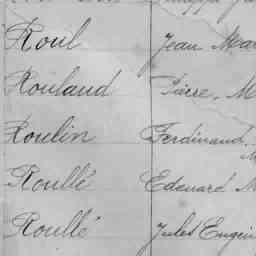 Roul Jean Mar
Rouland Pierre, M
Roulin Ferdinand,
M
Roullé Edouard M
Roullé Jules Eugèn